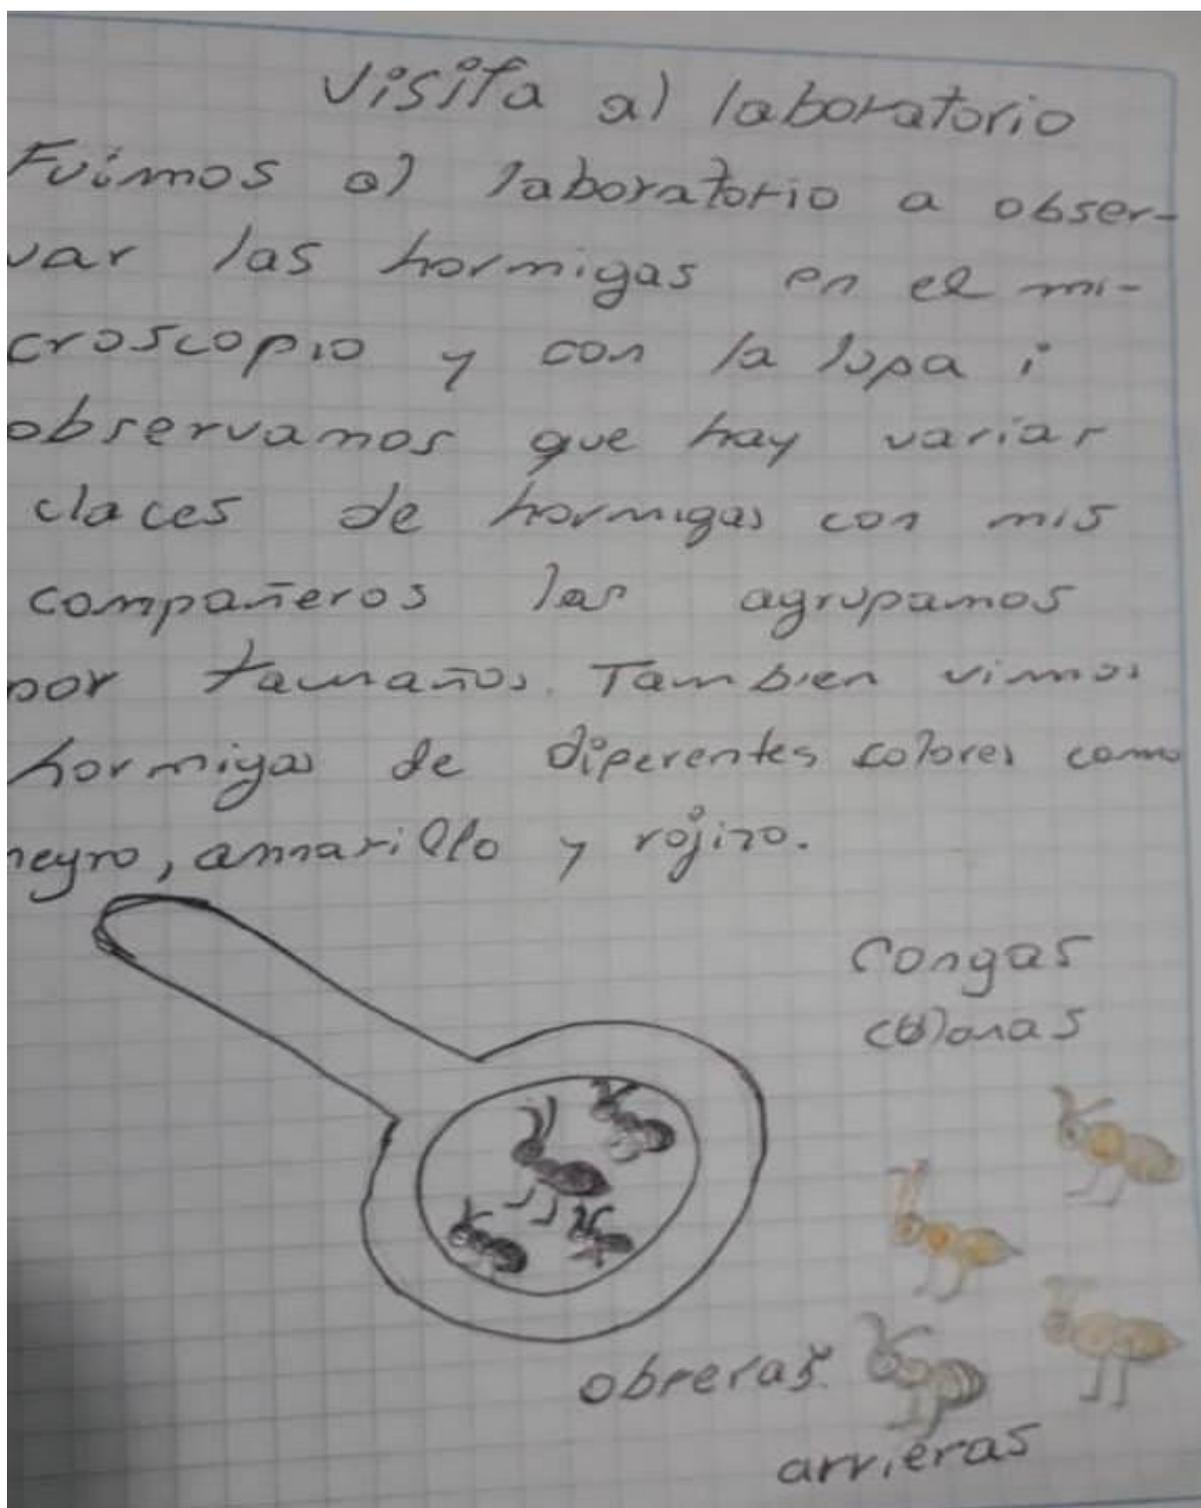 Visita al laboratorio
Fuimos al laboratorio a obser-
var las hormigas en el mi-
croscopio y con la lupa i
observamos que hay varias
claces de hormigas con mis
compañeros las agrupamos
por tamaños. Tambien vimos
hormigas de diperentes colores como
negro, amarillo y rojizo.
Congas
colonas
obreras.
arrieras